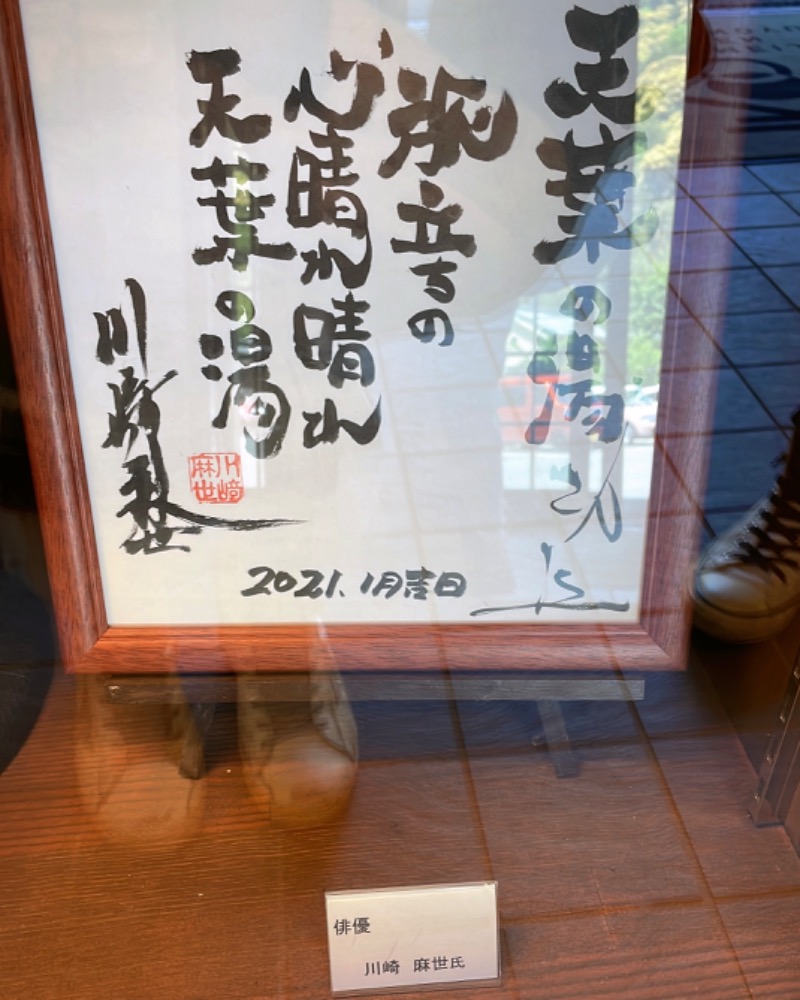 天葉の湯
旅立ちの
心晴れ晴れ
天葉の湯
川﨑麻世
川﨑
麻世
2021.1月吉日
俳優
川崎 麻世氏